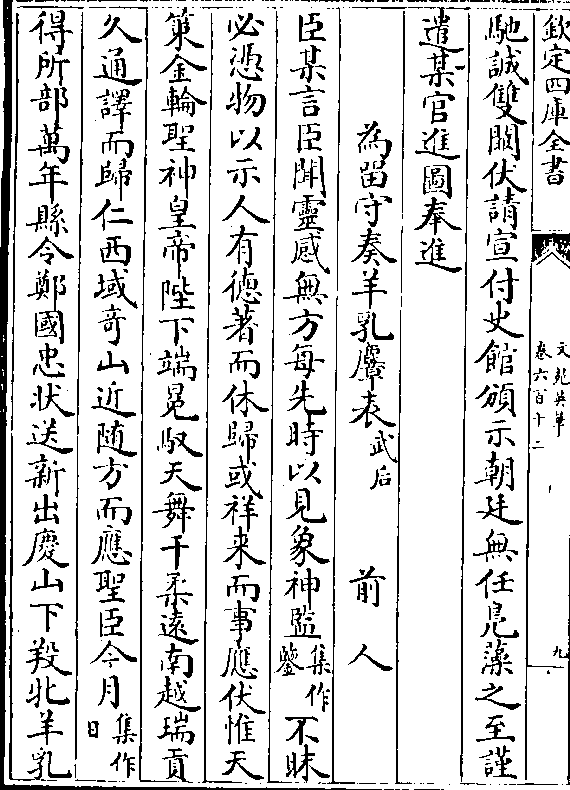 欽定四庫全書
文苑英華
卷六百十二
九
馳誠雙闕伏請宣付史館頒示朝廷無任鳧藻之至謹
遣某官進圖奉進
為留守奏羊乳麞表武后 前人
臣某言臣聞靈感無方每先時以見象神監集作鑒不昧
必憑物以示人有德著而休歸或祥来而事應伏惟天
策金輪聖神皇帝陛下端冕馭天舞干柔遠南越瑞貢
久通譯而歸仁西域奇山近随方而應聖臣今月集作日
得所部萬年縣令鄭國忠状送新出慶山下羖牝羊乳